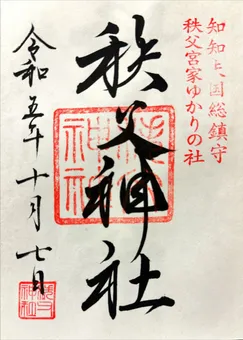 知知夫国総鎮守
秩父宮家ゆかりの社
秩父神社
令和五年十月七日
秩父神社